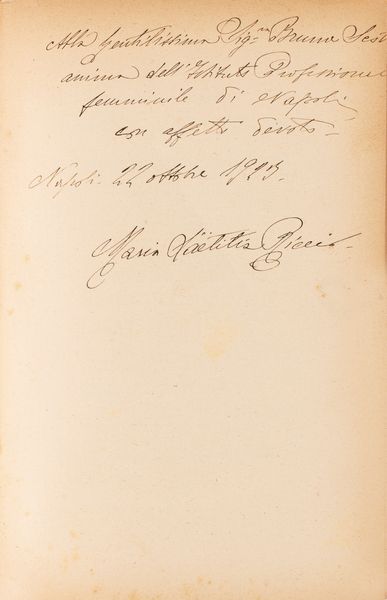 Alla gentilissima Sig.ra Bruna
anima dell'Istituto Professionale
femminile di Napoli
con affetto devoto –
Napoli. 22 ottobre 1923.
Maria Laetitia Riccio